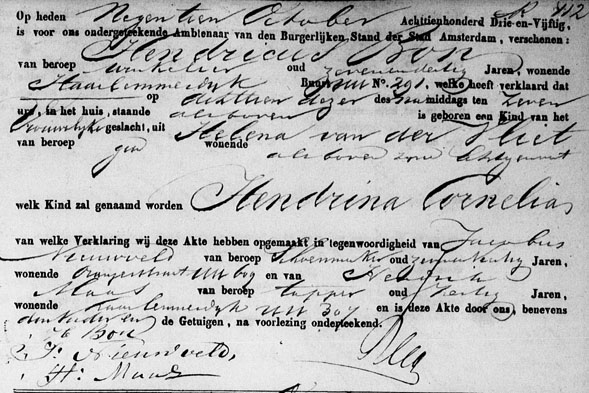 Op heden Negentien October Achttienhonderd Drie-en-Vijftig, 412
is voor ons ondergeteekende Ambtenaar van den Burgerlijken Stand der Stad Amsterdam, verschenen:
Hendricus Bon
van beroep winkelier oud zevenendertig Jaren, wonende
Haarlemmerdyk Buurt No. 291, welke heeft verklaard dat
op achttien dezer des namiddags ten zeven
ure, in het huis, staande als boven is geboren een Kind van het
vrouwelyke geslacht, uit Helena van der Vliet
van beroep geen wonende als boven zyne
welk Kind zal genaamd worden Hendrina Cornelia
van welke Verklaring wij deze Akte hebben opgemaakt in tegenwoordigheid van Jacobus
Nieuwveld van beroep Schoenmaker oud Jaren,
wonende Oranjestraat 609 en van
Maas van beroep tapper oud Jaren,
wonende Haarlemmerdyk 307 en is deze Akte door ons, benevens
den Vader en de Getuigen, na voorlezing onderteekend.
H Bon
J. Nieuwveld,
H. Maas